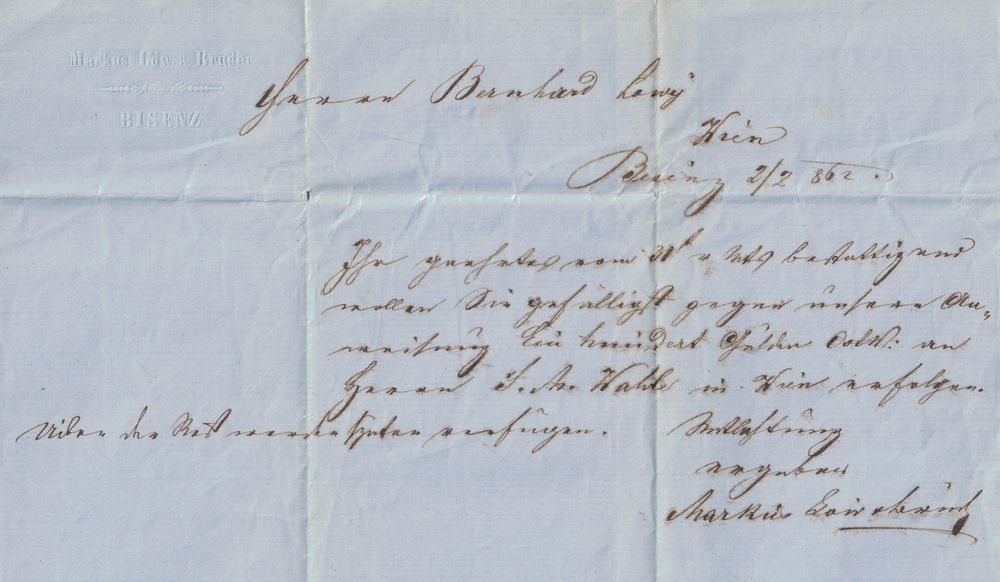 Markus Löw & Bruder
BISENZ
Herrn Bernhard Löwy
Wien
Bisenz 2/2 862.
Ihr geehrtes vom 31t v Mts bestattigend
wollen Sie gefälligst gegen unsere An-
weisung Ein hundert Gulden Oe W: an
Herrn S. M. in Wien erfolgen.
Uiber den Rest werden später verfügen.
Mit Achtung
ergeben
Markus Löw & Brud